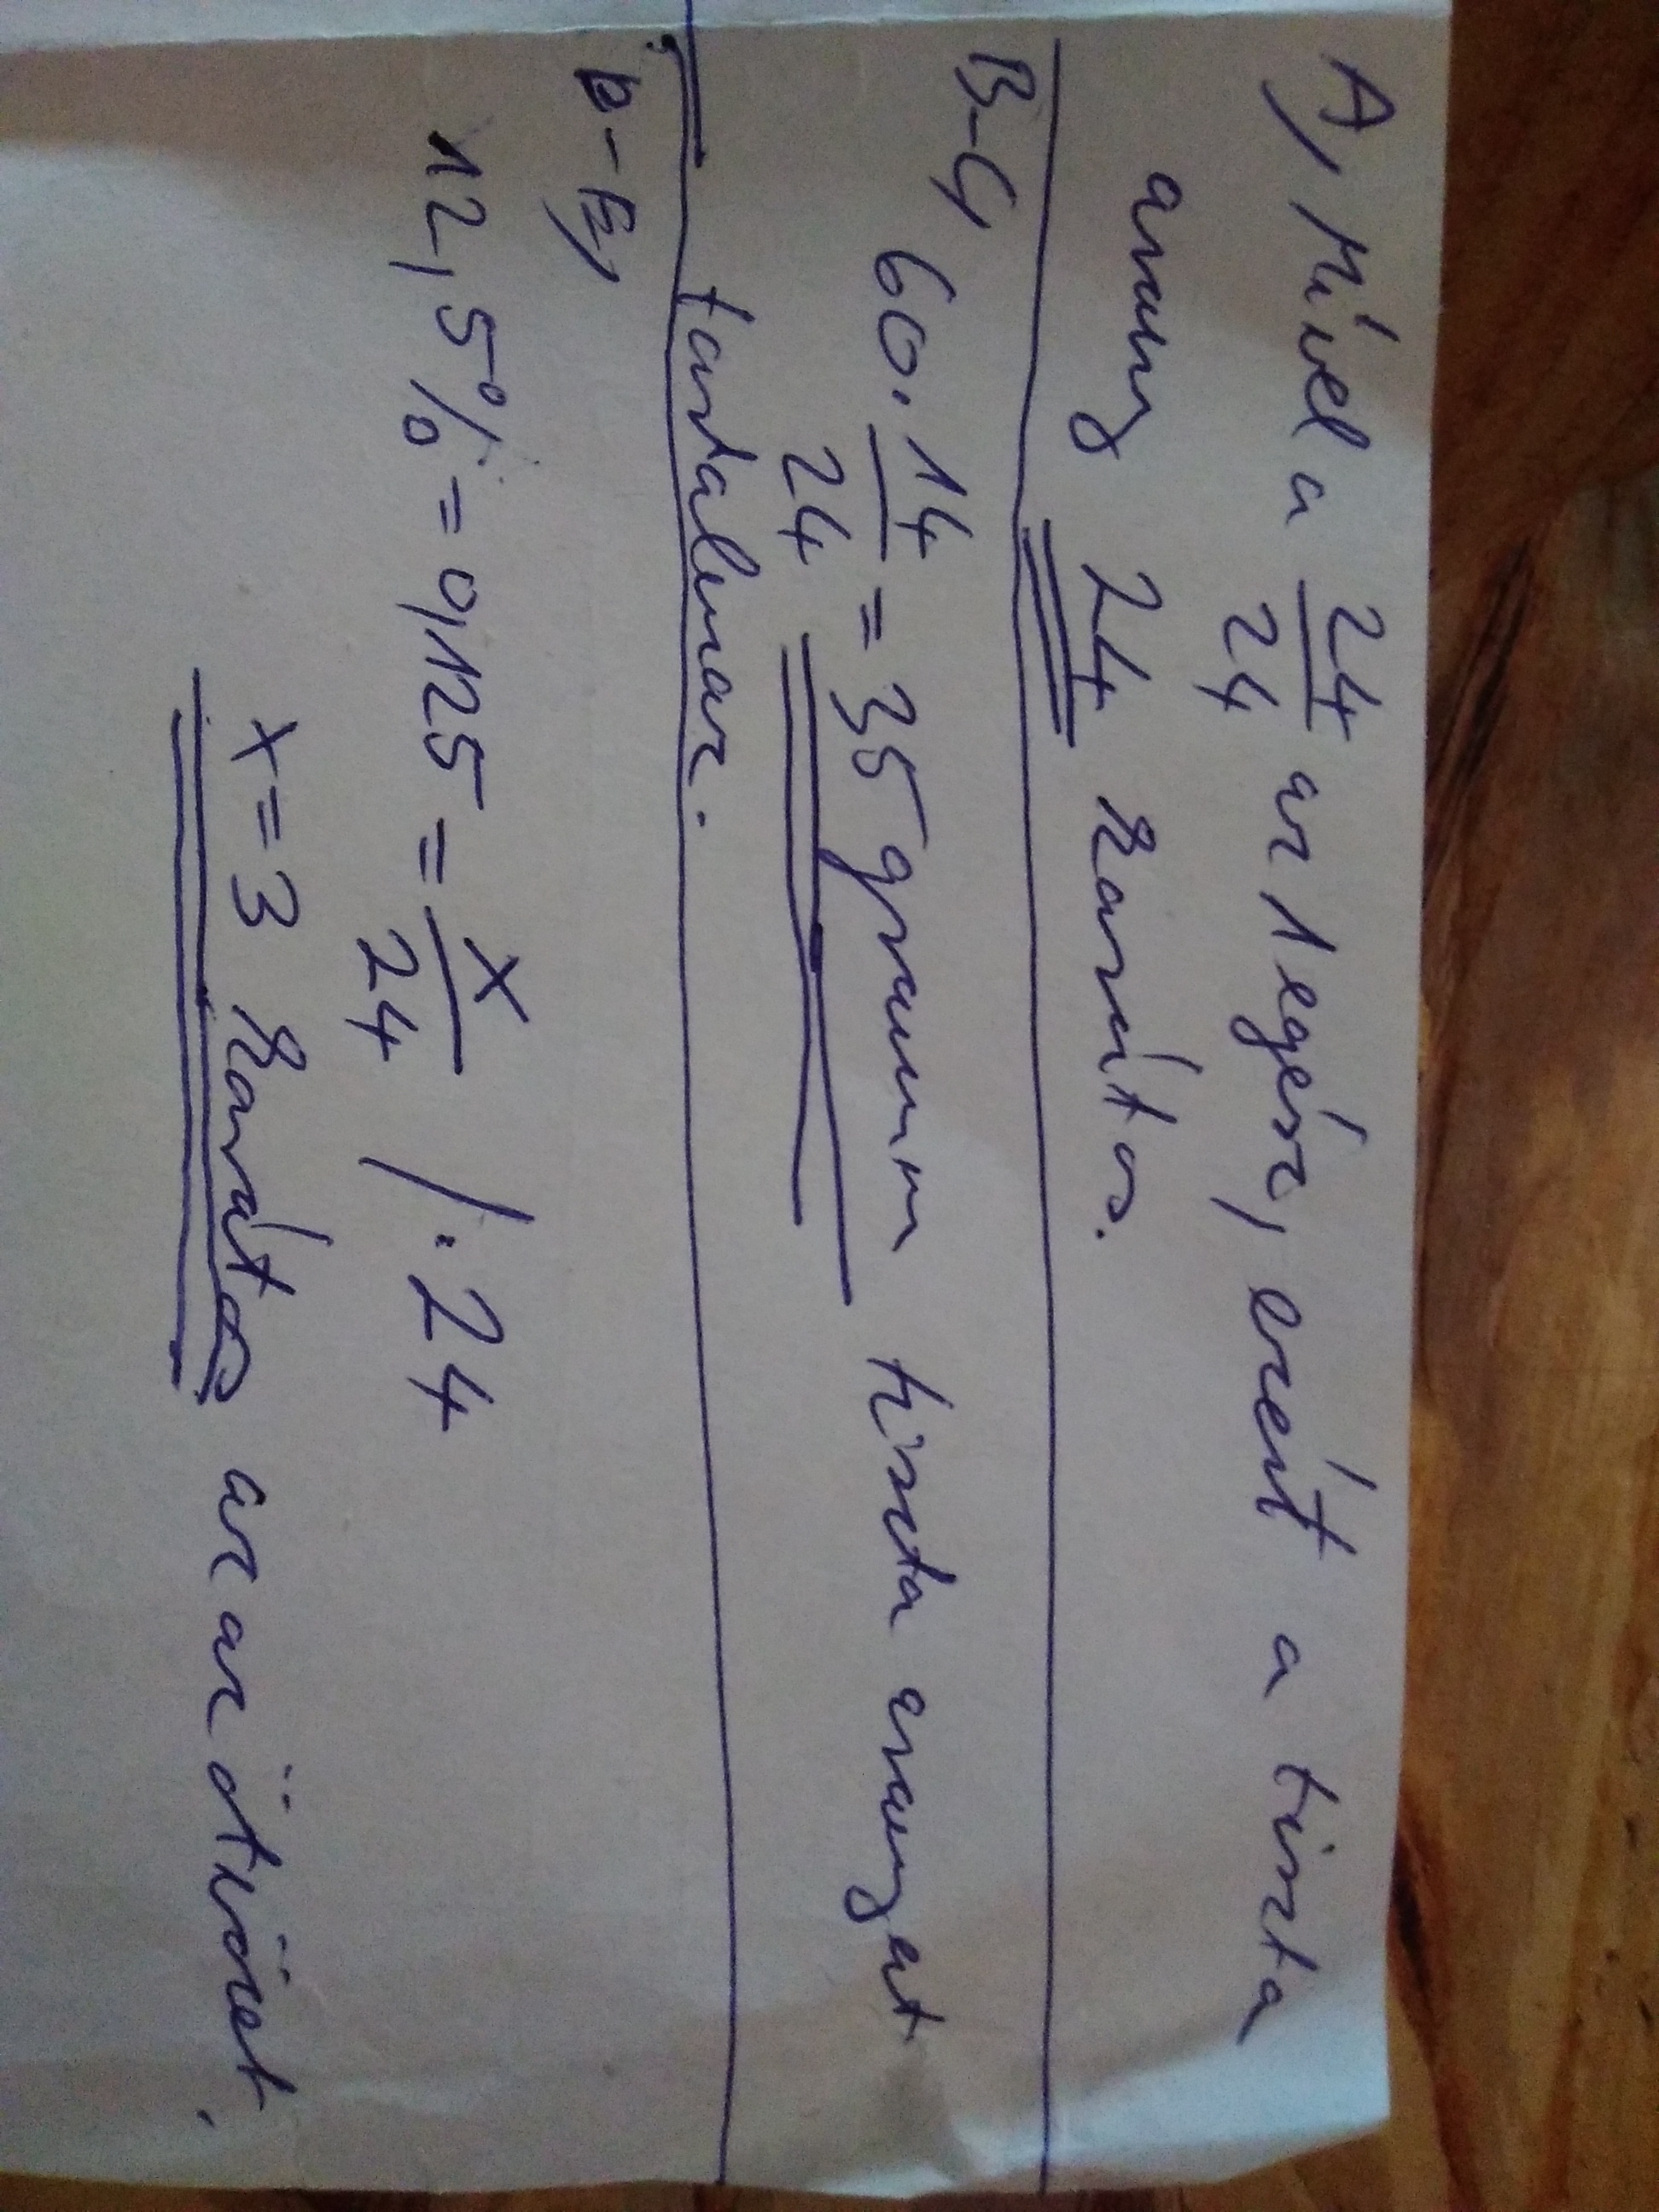 A, Mivel a 24/24 az 1 egész, ezért a tiszta
arany 24 karátos.
B-C, 60·14/24 = 35 gramm tiszta aranyat
tartalmaz.
D-E,
12,5% = 0,125 = x/24 /·24
x = 3 karátos az az ötvözet.